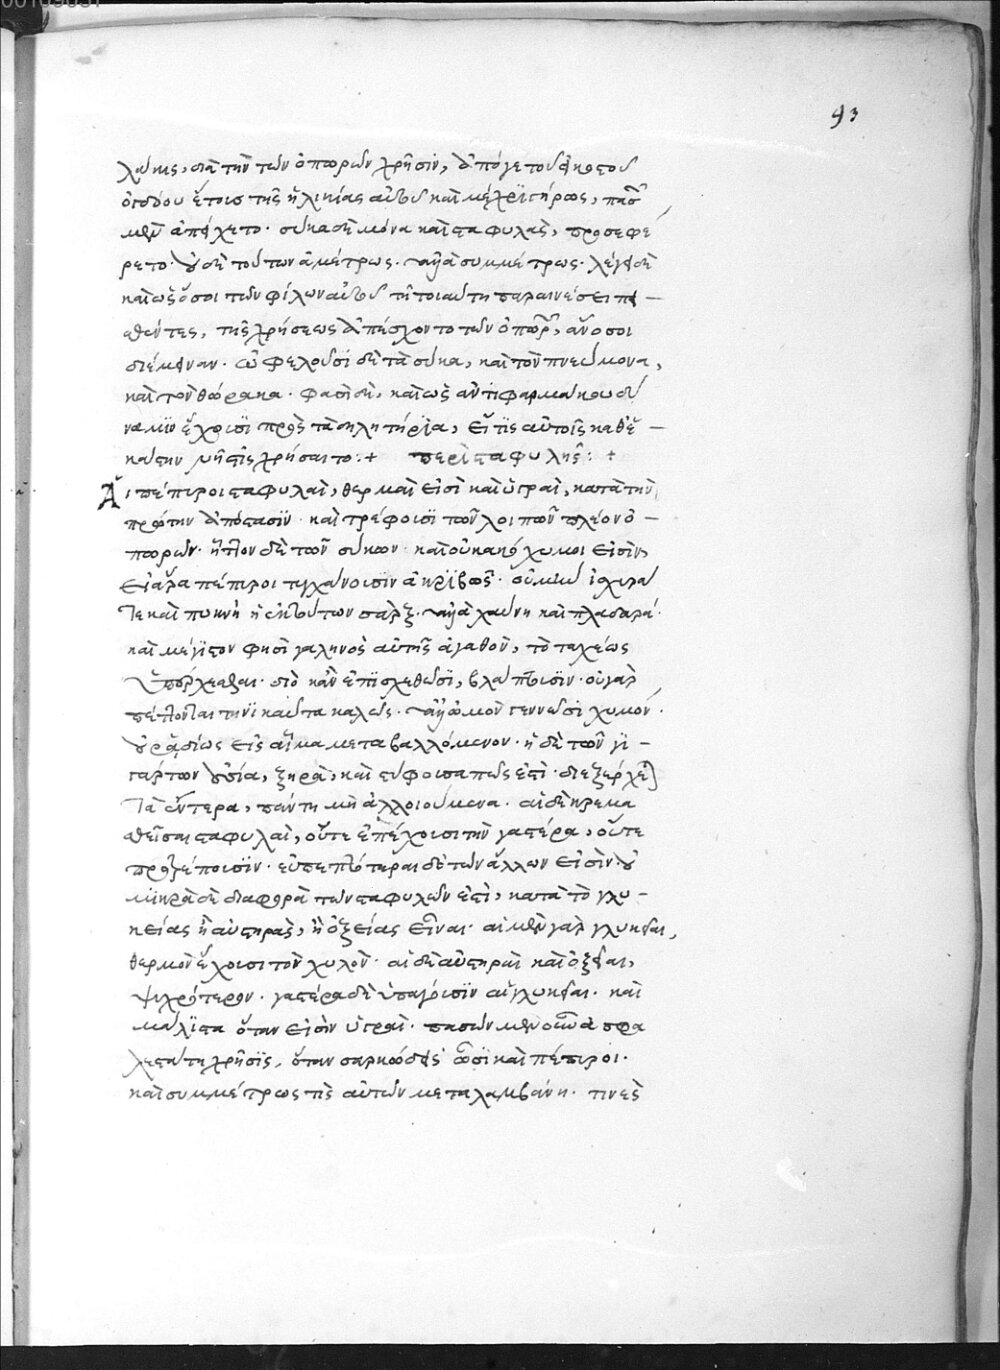 93
λάκις, διὰ τὴν τῶν ὀπωρῶν χρῆσιν, ἀπό γε τοῦ εἰκοστοῦ
ὀγδόου ἔτους τῆς ἡλικίας αὐτοῦ καὶ μέχρι γήρως, πασῶν
μὲν ἀπείχετο· σῦκα δὲ μόνα καὶ σταφυλὰς, προσεφέ
ρετο· οὐδὲ τούτων ἀμέτρως· ἀλλὰ συμμέτρως· λέγει δὲ
καὶ ὡς ὅσοι τῶν φίλων αὐτοῦ τῇ τοιαύτη παραινέσει πει
σθέντες, τῆς χρήσεως ἀπέσχοντο τῶν ὀπωρῶν, ἄνοσοι
διέμειναν· ὠφελοῦσι δὲ τὰ σῦκα, καὶ τὸν πνεύμονα,
καὶ τὸν θώρακα· φασὶ δὲ, καὶ ὡς ἀντιφαρμάκου δύ
ναμιν ἔχουσι πρὸς τὰ δηλητήρια, εἴ τις αὐτοῖς καθ' ἑ
κάστην νῆστις χρήσαιτο :+ περὶ σταφυλῆς: +
Αἱ πέπειροι σταφυλαὶ, θερμαὶ εἰσὶ καὶ ὑγραὶ, κατὰ τὴν
πρώτην ἀπόστασιν· καὶ τρέφουσι τῶν λοιπῶν πλέον ὀ
πωρῶν· ἧττον δὲ τῶν σύκων· καὶ οὐ κακόχυμοι εἰσὶν,
εἰ ἄρα πέπειροι τυγχάνουσιν ἀκριβῶς· οὐ μὴν ἰσχυρά
τε καὶ πυκνὴ ἡ ἐκ τούτων σάρξ· ἀλλὰ χαύνη καὶ πλαδαρά·
καὶ μέγιστον φησὶ γαληνὸς αὐτῆς ἀγαθὸν, τὸ ταχέως
ὑπέρχεσθαι· διὸ κἂν ἐπισχεθῶσι, βλάπτουσιν· οὐ γὰρ
πέττονται τηνικαῦτα καλῶς· ἀλλ' ὠμὸν γεννῶσι χυμόν·
οὐ ῥαδίως εἰς αἷμα μεταβαλλόμενον· ἡ δὲ τῶν γι
γάρτων οὐσία, ξηρὰ, καὶ στύφουσα πως ἐστὶ· διεξέρχεται
τὰ ἔντερα, πάντη μὴ ἀλλοιούμενα· αἱ δὲ κρεμα
σθεῖσαι σταφυλαὶ, οὔτε ἐπέχουσι τὴν γαστέρα, οὔτε
προτρέπουσιν· εὐπεπτότεραι δὲ τῶν ἄλλων εἰσὶν· οὐ
μικρὰ δὲ διαφορὰ τῶν σταφυλῶν ἐστὶ, κατὰ τὸ γλυ
κείας ἢ αὐστηρὰς, ἢ ὀξείας εἶναι· αἱ μὲν γὰρ γλυκεῖαι,
θερμὸν ἔχουσι τὸν χυλὸν· αἱ δὲ αὐστηραὶ καὶ ὀξεῖαι,
ψυχρότερον· γαστέρα δὲ ὑπάγουσιν αἱ γλυκεῖαι· καὶ
μάλιστα ὅταν εἰσὶν ὑγραὶ· πασῶν μὲν οὖν ἀσφα
λεστάτη χρῆσις, ὅταν σαρκώδεις ὦσι καὶ πέπειροι·
καὶ συμμέτρως τὶς αὐτῶν μεταλαμβάνη· τινὲς